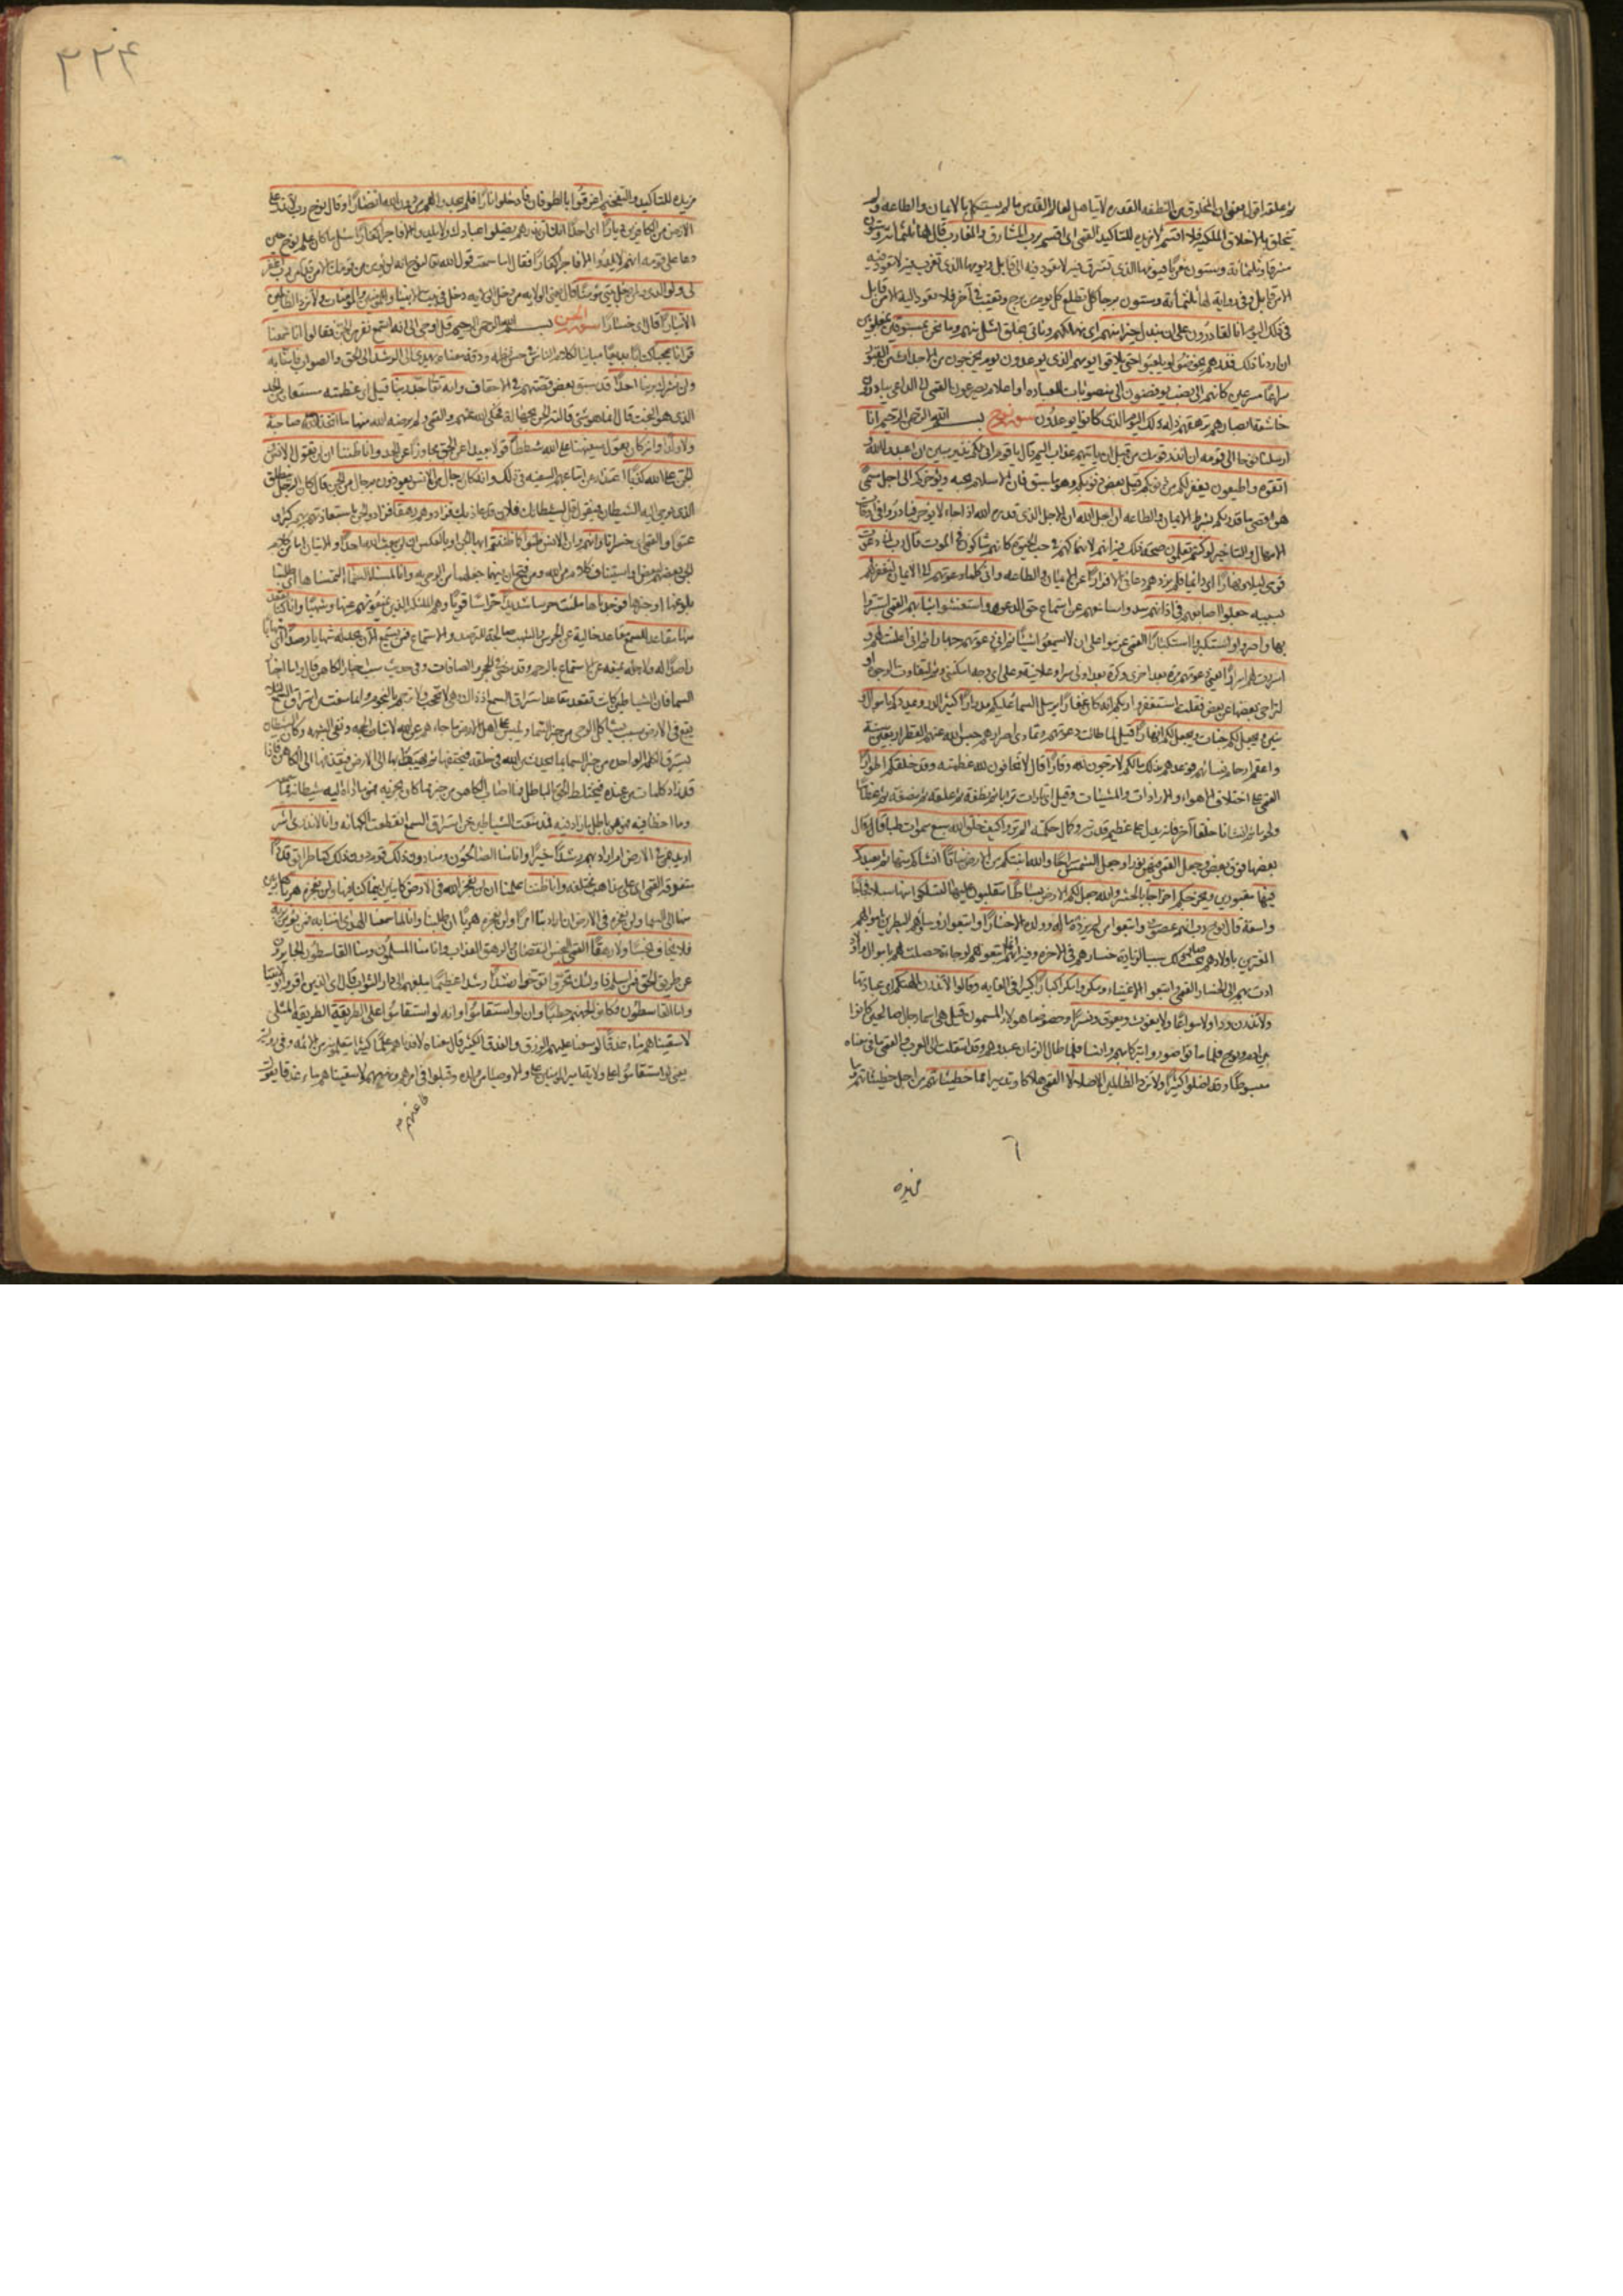 ثم علقه اقول يعنى ان المخلوق من النطفه القذره لا يتاهل لعالم القدس ما لم يستكمل بالايمان والطاعه ولم
يتخلق بالاخلاق الملكيه فلا اقسم لا مزيده للتاكيد القمى اى اقسم برب المشارق والمغارب قال لها ثلثمائه وستون
مشرقا وثلثمائة وستون مغربا فيومها الذى تشرق فيه لا تعود فيه الى قابل ويومها الذى تغرب فيه لا تعود فيه
الا من قابل وفى رواية لها ثلثمائة وستون برجا تطلع كل يوم من برج وتغيب فى آخر فلا تعود اليه الا من قابل
فى ذلك اليوم انا لقادرون على ان نبدل خيرا منهم اى نهلكهم وناتى بخلق امثل منهم وما نحن بمسبوقين بمغلوبين
ان اردنا ذلك فذرهم يخوضوا ويلعبوا حتى يلاقوا يومهم الذى يوعدون يوم يخرجون من الاجداث من القبور
سراعا مسرعين كانهم الى نصب يوفضون الى منصوبات للعباده او اعلام يسرعون القمى الى الداعى ينادون
خاشعة ابصارهم ترهقهم ذلة ذلك اليوم الذى كانوا يوعدون سورة نوح بسم الله الرحمن الرحيم انا
ارسلنا نوحا الى قومه ان انذر قومك من قبل ان ياتيهم عذاب اليم قال يا قوم انى لكم نذير مبين ان اعبدوا الله و
اتقوه واطيعون يغفر لكم من ذنوبكم قيل بعض ذنوبكم وهو ما سبق فان الاسلام يجبه ويؤخركم الى اجل مسمى
هو اقصى ما قدر لكم بشرط الايمان والطاعه ان اجل الله ان الاجل الذى قدره الله اذا جاء لا يؤخر فبادروا فى اوقات
الامهال والتاخير لو كنتم تعلمون فيه انهم لانهماكهم فى حب الحيوة كانهم شاكون فى الموت قال رب انى دعوت
قومى ليلا ونهارا اى دائما فلم يزدهم دعائى الا فرارا عن الايمان والطاعه وانى كلما دعوتهم الى الايمان لتغفر لهم
بسببه جعلوا اصابعهم فى اذانهم سدوا مسامعهم عن استماع الدعوه واستغشوا ثيابهم القمى استتروا
بها واصروا واستكبروا استكبارا القمى عزموا على ان لا يسمعوا شيئا ثم انى دعوتهم جهارا ثم انى اعلنت لهم و
اسررت لهم اسرارا اى دعوتهم مرة بعد اخرى وكرة بعد اولى سرا وعلانية وعلى اى وجه امكننى وثم لتفاوت الوجوه او
لتراخى بعضها عن بعض فقلت استغفروا ربكم انه كان غفارا يرسل السماء عليكم مدرارا كثير الدر ويمددكم باموال و
بنين ويجعل لكم جنات ويجعل لكم انهارا قيل لما طالت دعوتهم وتمادى اصرارهم حبس الله عنهم القطر اربعين سنة
واعقم ارحام نسائهم فوعدهم بذلك ما لكم لا ترجون لله وقارا قال لا تخافون لله عظمته وقد خلقكم اطوارا
القمى على اختلاف الاهواء والارادات والمشيات وقيل اى تارات ترابا ثم نطفه ثم علقه ثم مضغه ثم عظاما
ولحوما ثم انشانا خلقا آخر فانه يدل على عظيم قدرته وكمال حكمته الم تروا كيف خلق الله سبع سموات طباقا قال
بعضها فوق بعض وجعل القمر فيهن نورا وجعل الشمس سراجا والله انبتكم من الارض نباتا انشاكم منها ثم يعيدكم
فيها مقبورين ويخرجكم اخراجا بالحشر والله جعل لكم الارض بساطا تتقلبون عليها لتسلكوا منها سبلا فجاجا
واسعة قال نوح رب انهم عصونى واتبعوا من لم يزده ماله وولده الا خسارا واتبعوا رؤسائهم البطرين باموالهم
المغترين باولادهم بحيث صار ذلك سببا لزيادة خسارهم فى الاخره وفيه انهم انما اتبعوهم لوجاهة حصلت لهم باموال واولاد
ادت بهم الى الخسار القمى اتبعوا الاغنياء ومكروا مكرا كبارا كبيرا فى الغايه وقالوا لا تذرن الهتكم اى عبادتها
ولا تذرن ودا ولا سواعا ولا يغوث ويعوق ونسرا وخصوصا هؤلاء المسمون قيل هى اسماء رجال صالحين كانوا
بين ادم ونوح فلما ماتوا صوروا تبركا بهم وانسا فلما طال الزمان عبدوهم وقد انتقلت الى العرب والقمى ما فى معناه
مبسوطا وقد اضلوا كثيرا ولا تزد الظالمين الا ضلالا القمى هلاكا وتدميرا مما خطيئاتهم من اجل خطيئاتهم وما
مزيده
مزيده للتاكيد والتفخيم اغرقوا بالطوفان فادخلوا نارا فلم يجدوا لهم من دون الله انصارا وقال نوح رب لا تذر على
الارض من الكافرين ديارا اى احدا انك ان تذرهم يضلوا عبادك ولا يلدوا الا فاجرا كفارا سئل ما كان علم نوح حين
دعا على قومه انهم لا يلدوا الا فاجرا كفارا فقال اما سمعت قول الله تعالى لنوح انه لن يؤمن من قومك الا من قد آمن رب اغفر
لى ولوالدى ولمن دخل بيتى مؤمنا قال يعنى الولايه من دخل فى الولايه دخل فى بيت الانبياء وللمؤمنين والمؤمنات ولا تزد الظالمين
الا تبارا قال اى خسارا سورة الجن بسم الله الرحمن الرحيم قل اوحى الى انه استمع نفر من الجن فقالوا انا سمعنا
قرآنا عجبا كتابا بديعا مباينا لكلام الناس فى حسن نظمه ودقة معناه يهدى الى الرشد الى الحق والصواب فامنا به
ولن نشرك بربنا احدا قد سبق بعض قصتهم فى الاحقاف وانه تعالى جد ربنا قيل اى عظمته مستعار من الجد
الذى هو البخت قال انما هو شئ قالته الجن بجهالة فحكى الله عنهم والقمى ولم يرضه الله منها ما اتخذ صاحبة
ولا ولدا وانه كان يقول سفيهنا على الله شططا قولا بعيدا عن الحق مجاوزا عن الحد وانا ظننا ان لن تقول الانس
والجن على الله كذبا اعتذار عن اتباعهم السفيه فى ذلك وانه كان رجال من الانس يعوذون برجال من الجن قال كان الرجل ينطلق
الى الكاهن الذى يوحى اليه الشيطان فيقول قل لشيطانك فلان قد عاذ بك فزادوهم رهقا فزادوا الجن باستعاذتهم بهم كبرا و
عتوا والقمى اى خسرانا وانهم وان الانس ظنوا كما ظننتم ايها الجن او بالعكس ان لن يبعث الله احدا والايتان اما من كلام
الجن بعضهم لبعض او استيناف كلام من الله ومن فتح ان فيهما جعلهما من الموحى به وانا لمسنا السماء التمسناها اى طلبنا
بلوغها او خبرها فوجدناها ملئت حرسا شديدا حراسا قويا وهم الملائكه الذين يمنعونهم عنها وشهبا وانا كنا نقعد
منها مقاعد للسمع مقاعد خالية عن الحرس والشهب صالحة للترصد والاستماع فمن يستمع الآن يجد له شهابا رصدا اى شهابا
راصدا له ولاجله يمنعه عن الاستماع بالرجم وقد مضى فى الحجر والصافات وفى حديث سبب اخبار الكاهن قال واما اخبار
السماء فان الشياطين كانت تقعد مقاعد استراق السمع اذ ذاك وهى لا تحجب ولا ترجم بالنجوم وانما منعت من استراق السمع لئلا
يقع فى الارض سبب يشاكل الوحى من خبر السماء ويلبس على اهل الارض ما جاءهم عن الله لاثبات الحجه ونفى الشبهه وكان الشيطان
يسترق الكلمة الواحدة من خبر السماء بما يحدث من الله فى خلقه فيختطفها ثم يهبط بها الى الارض فيقذفها الى الكاهن فاذا
قد زاد كلمات من عنده فيختلط الحق بالباطل فما اصاب الكاهن من خبر مما كان يخبر به فهو ما اداه اليه شيطانه مما سمعه
وما اخطا فيه فهو من باطل ما زاد فيه فمذ منعت الشياطين عن استراق السمع انقطعت الكهانه وانا لا ندرى اشر
اريد بمن فى الارض ام اراد بهم ربهم رشدا خيرا وانا منا الصالحون ومنا دون ذلك قوم دون ذلك كنا طرائق قددا
متفرقة القمى اى على مذاهب مختلفه وانا ظننا علمنا ان لن نعجز الله فى الارض كائنين اينما كنا فيها ولن نعجزه هربا هاربين
منها الى السماء ولن نعجزه فى الارض ان اراد بنا امرا ولن نعجزه هربا ان طلبنا وانا لما سمعنا الهدى آمنا به فمن يؤمن بربه
فلا يخاف بخسا ولا رهقا القمى البخس النقصان والرهق العذاب وانا منا المسلمون ومنا القاسطون الجايرون
عن طريق الحق فمن اسلم فاولئك تحروا رشدا توخوا رشدا عظيما يبلغهم الى دار الثواب قال اى الذين اقروا بولايتنا
واما القاسطون فكانوا لجهنم حطبا وان لو استقاموا وانه لو استقاموا على الطريقة الطريقة المثلى
لاسقيناهم ماء غدقا لوسعنا عليهم الرزق والغدق الكثير قال معناه لافدناهم علما كثيرا يتعلمونه من الائمه وفى رواية
يعنى لو استقاموا على ولاية امير المؤمنين على والاوصياء من ولده وقبلوا طاعتهم فى امرهم ونهيهم لاسقيناهم ماء غدقا يقول
طاعتهم
۳۲۴